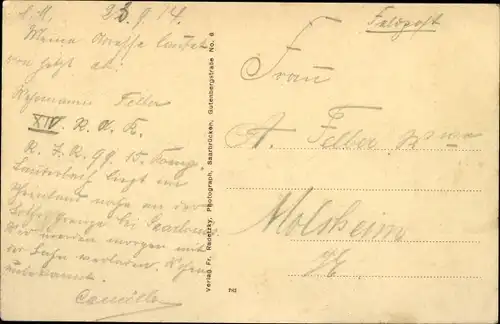 23.9.14.
Meine Adresse lautet
von jetzt ab:
Felber
XIV. R. A. K.
R. I. R. 99. 15. Komp.
Lauterbach liegt im
Rheinland nahe an der
Lothr. Grenze bei
Wir werden morgen mit
der Bahn verladen.
unbekannt.
Camille
Verlag Fr. Radetzky, Photograph, Saarbrücken, Gutenbergstraße No. 6
Feldpost
Frau
A. Felber
Molsheim